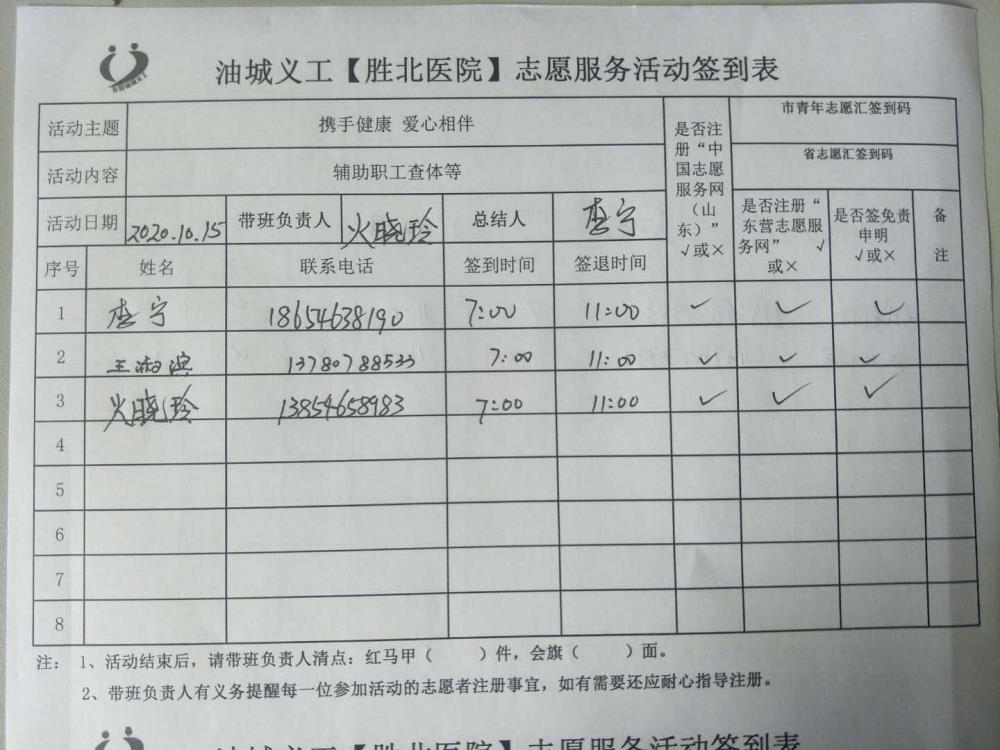 油城义工【胜北医院】志愿服务活动签到表
活动主题 携手健康 爱心相伴 是否注册“中国志愿服务网（山东）”√或× 市青年志愿汇签到码
活动内容 辅助职工查体等 省志愿汇签到码
活动日期 2020.10.15 带班负责人 火晓玲 总结人 李宁 是否注册“东营志愿服务网” √或× 是否签免责申明√或× 备注
序号 姓名 联系电话 签到时间 签退时间
1 李宁 18654638190 7:00 11:00 ✓ ✓ ✓
2 王湘滨 13780788533 7:00 11:00 ✓ ✓ ✓
3 火晓玲 13854658983 7:00 11:00 ✓ ✓ ✓
4
5
6
7
8
注： 1、活动结束后，请带班负责人清点：红马甲（ ）件，会旗（ ）面。
2、带班负责人有义务提醒每一位参加活动的志愿者注册事宜，如有需要还应耐心指导注册。
油城义工【胜北医院】志愿服务活动签到表